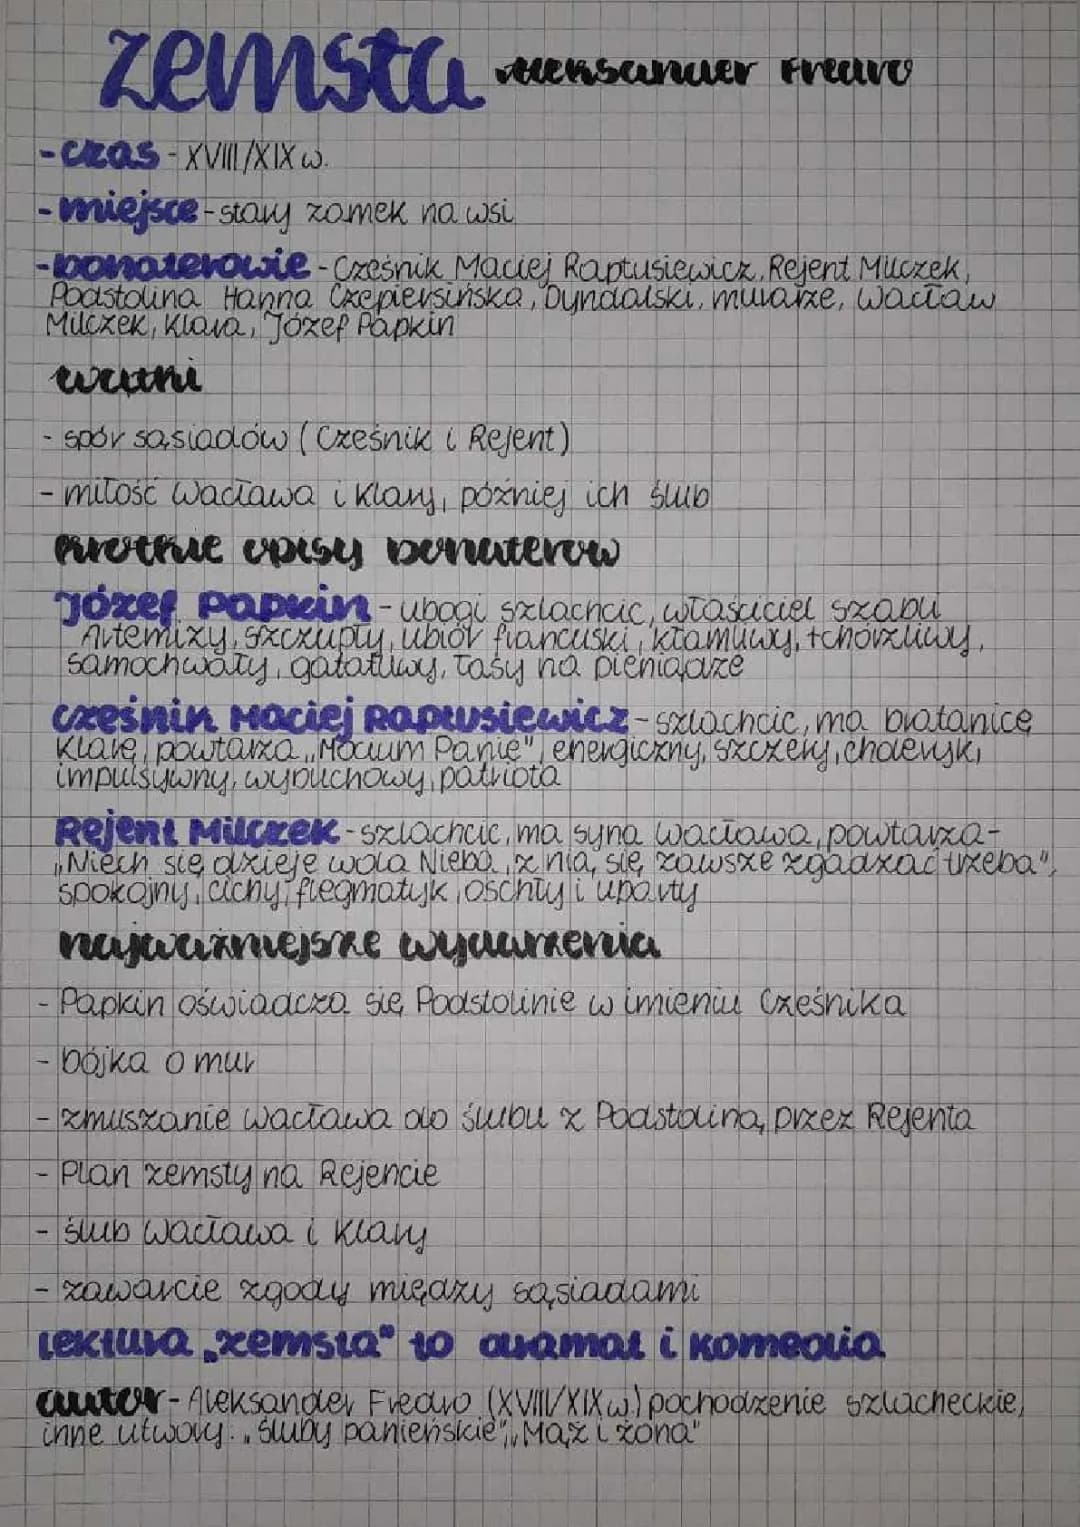 Zemsta Aleksander Fredro
- czas - XVIII/XIX w.
- miejsce - stary zamek na wsi
- bohaterowie - Cześnik Maciej Raptusiewicz, Rejent Milczek,
Podstolina Hanna Czepiersińska, Dyndalski, murarze, Wacław
Milczek, Klara, Józef Papkin
wątki
- spór sąsiadów (Cześnik i Rejent)
- miłość Wacława i Klary, później ich ślub
krótkie opisy bohaterów
Józef Papkin - ubogi szlachcic, właściciel szabli
Artemizy, szczupły, ubiór francuski, kłamliwy, tchórzliwy,
samochwały, gadatliwy, łasy na pieniądze
Cześnik Maciej Raptusiewicz - szlachcic, ma bratanicę
Klarę, powtarza „Mocium Panie", energiczny, szczery, choleryski,
impulsywny, wybuchowy, patriota
Rejent Milczek - szlachcic, ma syna Wacława, powtarza -
„Niech się dzieje wola Nieba, z nią się zawsze zgadzać trzeba",
spokojny, cichy, flegmatyk, oschły i uparty
najważniejsze wydarzenia
- Papkin oświadcza się Podstolinie w imieniu Cześnika
- bójka o mur
- zmuszanie Wacława do ślubu z Podstoliną przez Rejenta
- Plan zemsty na Rejencie
- ślub Wacława i Klary
- zawarcie zgody między sąsiadami
lektura „zemsta" to dramat i komedia
autor - Aleksander Fredro (XVIII/XIX w.) pochodzenie szlacheckie,
inne utwory: „Śluby panieńskie", „Mąż i żona"